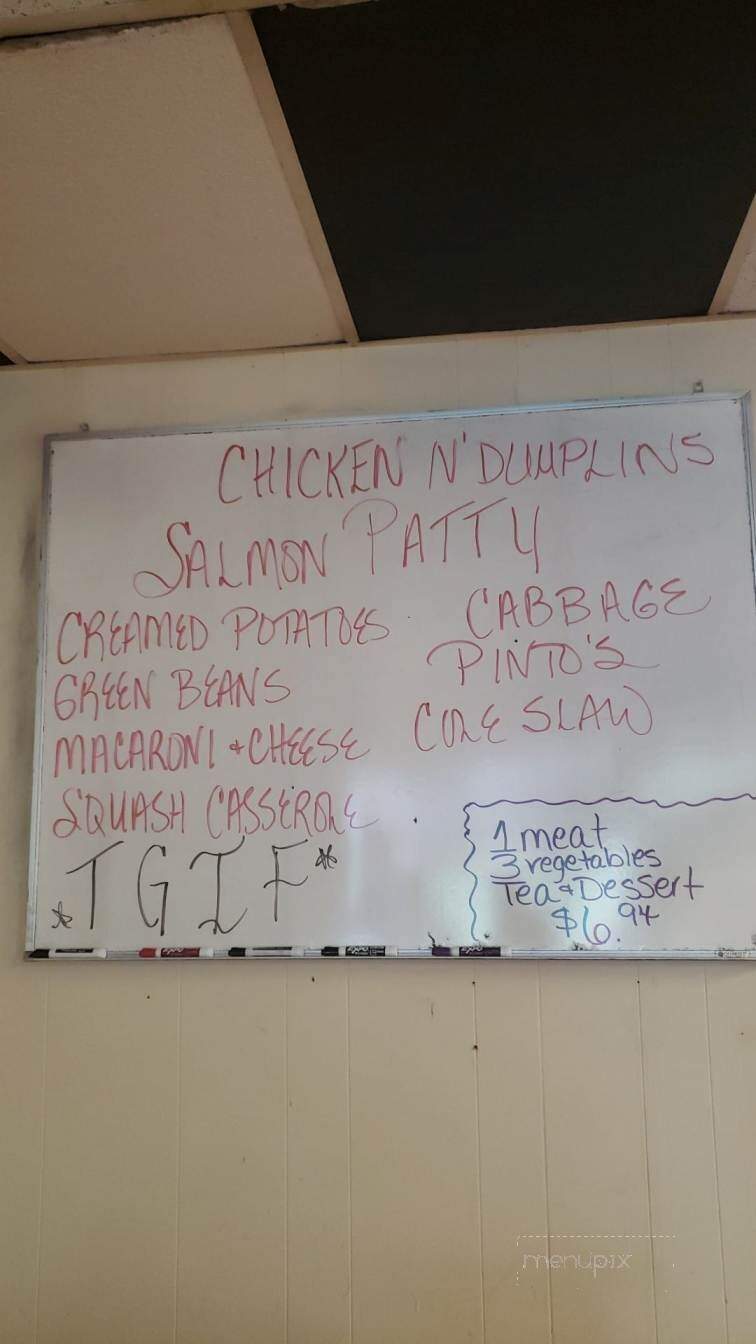 CHICKEN N' DUMPLINS
SALMON PATTY
CREAMED POTATOES
GREEN BEANS
MACARONI & CHEESE
SQUASH CASSEROLE
CABBAGE
PINTO'S
COLE SLAW
*TGIF*
1 meat
3 vegetables
Tea & Dessert
$6.94
menupix